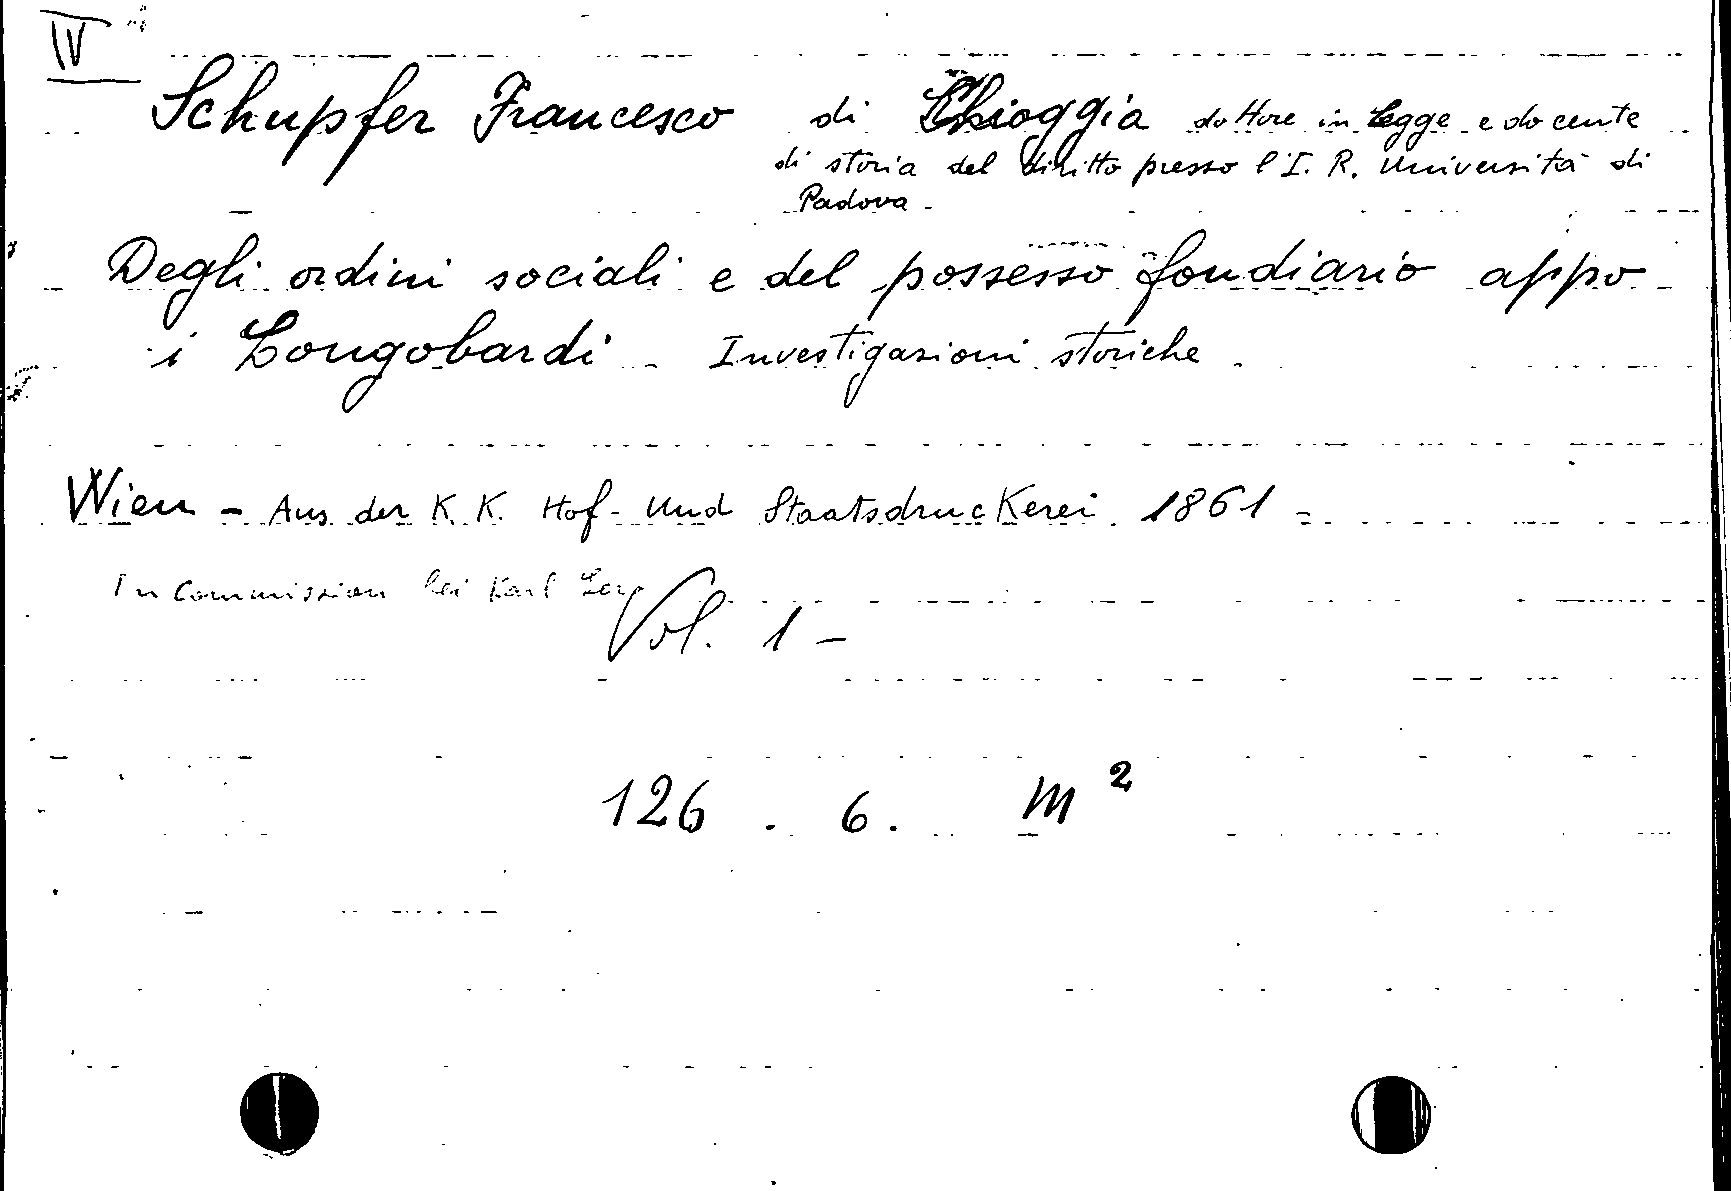 IV
Schupfer Francesco di Chioggia dottore in legge e docente
di storia del diritto presso l'I. R. Università di
Padova -
Degli ordini sociali e del possesso fondiario appo
i Longobardi - Investigazioni storiche.
Wien - Aus der K. K. Hof- und Staatsdruckerei 1861 -
In Commission bei Karl
Vol. 1 -
126 . 6. M²